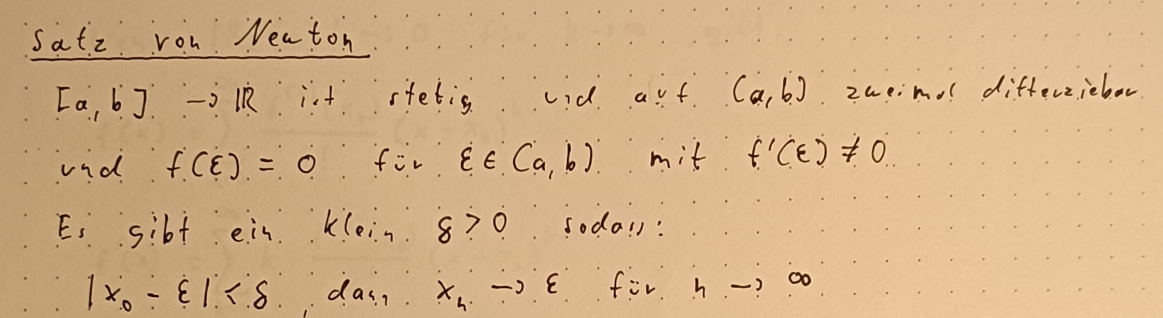 Satz von Newton
[a,b] -> ℝ ist stetig und auf (a,b) zweimal differziebar
und f(ε) = 0 für ε ∈ (a,b) mit f'(ε) ≠ 0
Es gibt ein klein δ > 0 sodass:
|x₀ - ε| < δ, dann xₙ -> ε für n -> ∞